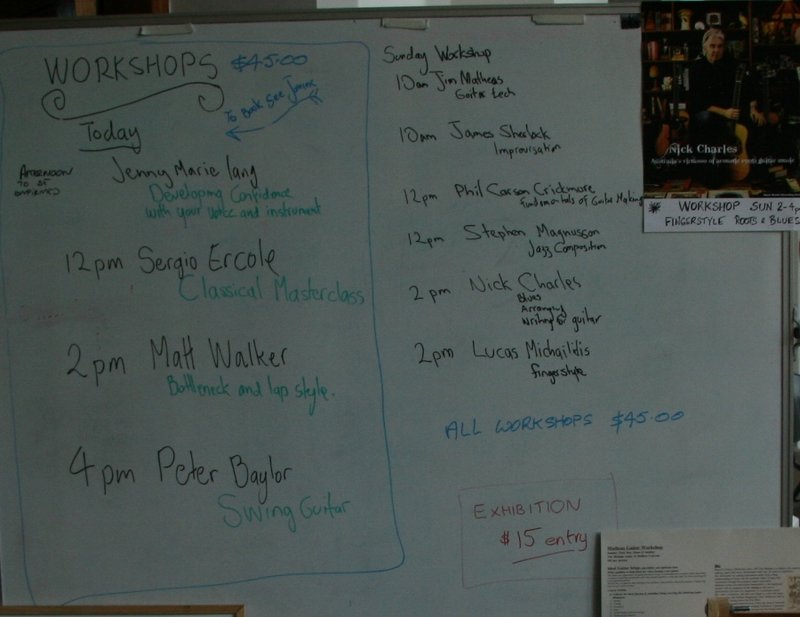 WORKSHOPS $45.00
To Book See
Today
AFTERNOON
TO BE
CONFIRMED
Jenny Marie Lang
Developing Confidence
with your voice and instrument
12pm Sergio Ercole
Classical Masterclass
2pm Matt Walker
Bottleneck and lap style.
4pm Peter Baylor
Swing Guitar
Sunday Workshop
10am Jim Matheas
Guitar tech
10am James Sherlock
Improvisation
12pm Phil Carson Crickmore
Fundamentals of Guitar Making
12pm Stephen Magnusson
Jazz Composition
2pm Nick Charles
Blues
Arranging
Writing for guitar
2pm Lucas Michailidis
fingerstyle
ALL WORKSHOPS $45.00
EXHIBITION
$15 entry
Nick Charles
Australia's virtuoso of acoustic roots guitar music
WORKSHOP SUN 2-4p
FINGERSTYLE ROOTS & BLUES
Guitar Workshop